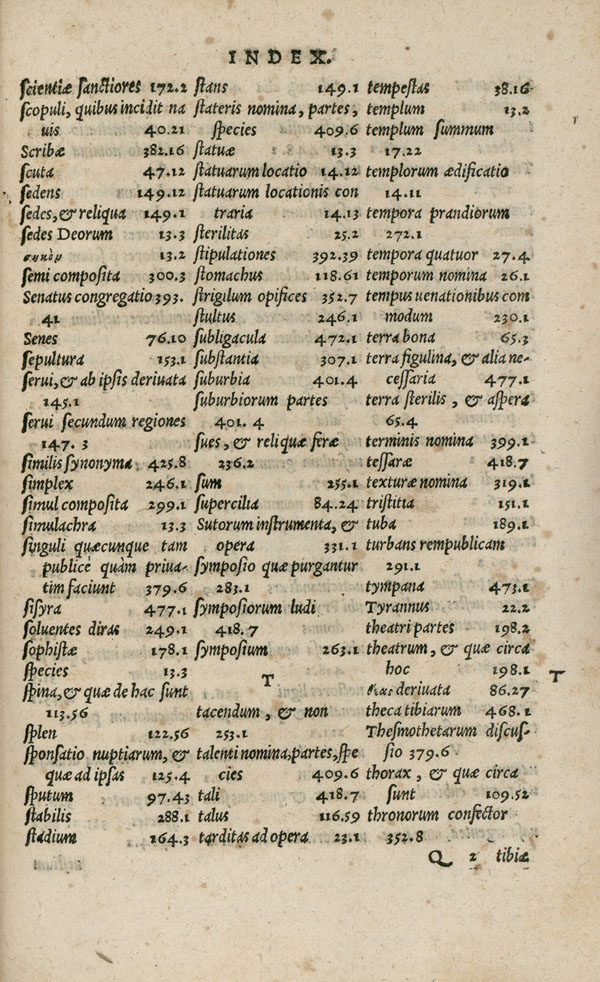 INDEX.
scientiæ sanctiores 172.2
scopuli, quibus incidit na
uis 40.21
Scribæ 382.16
scuta 47.12
sedens 149.12
sedes, & reliqua 149.1
sedes Deorum 13.3
13.2
semi composita 300.3
Senatus congregatio 393.
41
Senes 76.10
sepultura 153.1
serui, & ab ipsis deriuata
145.1
serui secundum regiones
147. 3
similis synonyma 425.8
simplex 246.1
simul composita 299.1
simulachra 13.3
singuli quæcunque tam
publicè quàm priua-
tim faciunt 379.6
sisyra 477.1
soluentes diras 249.1
sophistæ 178.1
species 13.3
spina, & quæ de hac sunt
113.56
splen 122.56
sponsatio nuptiarum, &
quæ ad ipsas 125.4
sputum 97.43
stabilis 288.1
stadium 164.3
stans 149.1
stateris nomina, partes,
species 409.6
statuæ 13.3
statuarum locatio 14.12
statuarum locationis con
traria 14.13
sterilitas 25.2
stipulationes 392.39
stomachus 118.61
strigilum opifices 352.7
stultus 246.1
subligacula 472.1
substantia 307.1
suburbia 401.4
suburbiorum partes
401. 4
sues, & reliquæ feræ
236.2
sum 255.1
supercilia 84.24
Sutorum instrumenta, &
opera 331.1
symposio quæ purgantur
283.1
symposiorum ludi
418. 7
symposium 263.1
T
tacendum, & non
253.1
talenti nomina, partes, spe
cies 409.6
tali 418.7
talus 116.59
tarditas ad opera 23.1
tempestas 38.16
templum 13.2
templum summum
17.22
templorum ædificatio
14.11
tempora prandiorum
272.1
tempora quatuor 27.4
temporum nomina 26.1
tempus uenationibus com
modum 230.1
terra bona 65.3
terra figulina, & alia ne-
cessaria 477.1
terra sterilis, & aspera
65.4
terminis nomina 399.1
tessaræ 418.7
texturæ nomina 319.1
tristitia 151.1
tuba 189.1
turbans rempublicam
291.1
tympana 473.1
Tyrannus 22.2
theatri partes 198.2
theatrum, & quæ circa
hoc 198.1
T
deriuata 86.27
theca tibiarum 468.1
Thesmothetarum discus-
sio 379.6
thorax, & quæ circa
sunt 109.52
thronorum confector
352.8
Q 2 tibiæ